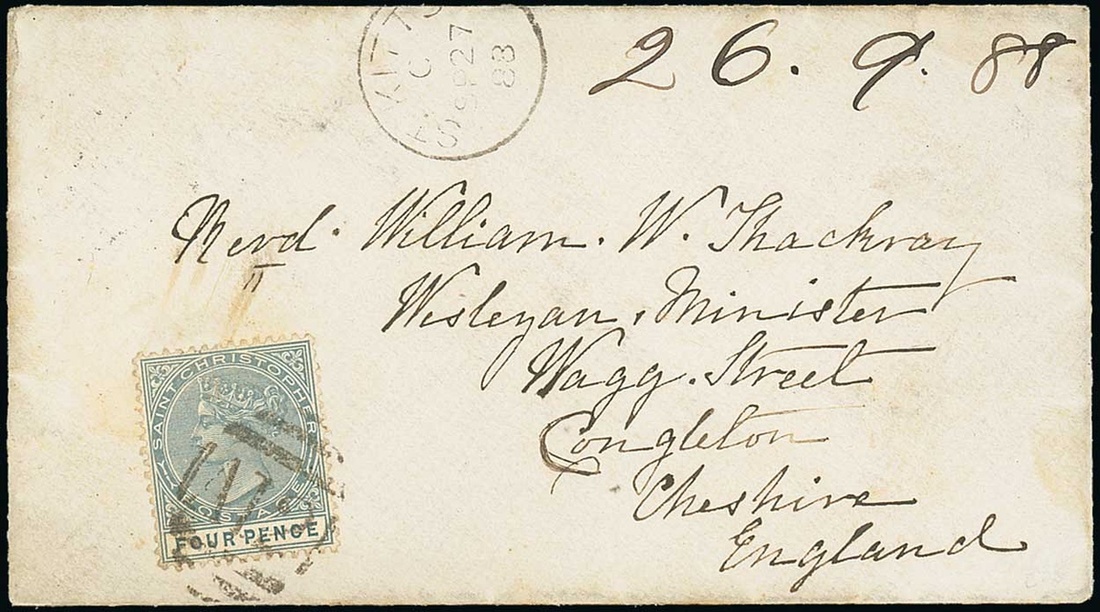 ST. KITTS
C
SP 27
88
26. 9. 88
Revd. William. W. Thackray
Wesleyan. Minister
Wagg. Street
Congleton
Cheshire
England
SAINT CHRISTOPHER
POSTAGE
FOUR PENCE